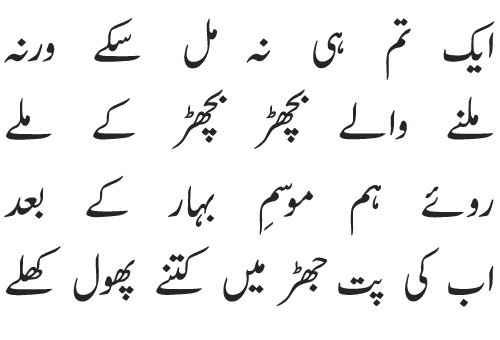 ایک تم ہی نہ مل سکے ورنہ
ملنے والے بچھڑ بچھڑ کے ملے
روئے ہم موسمِ بہار کے بعد
اب کی پت جھڑ میں کتنے پھول کھلے